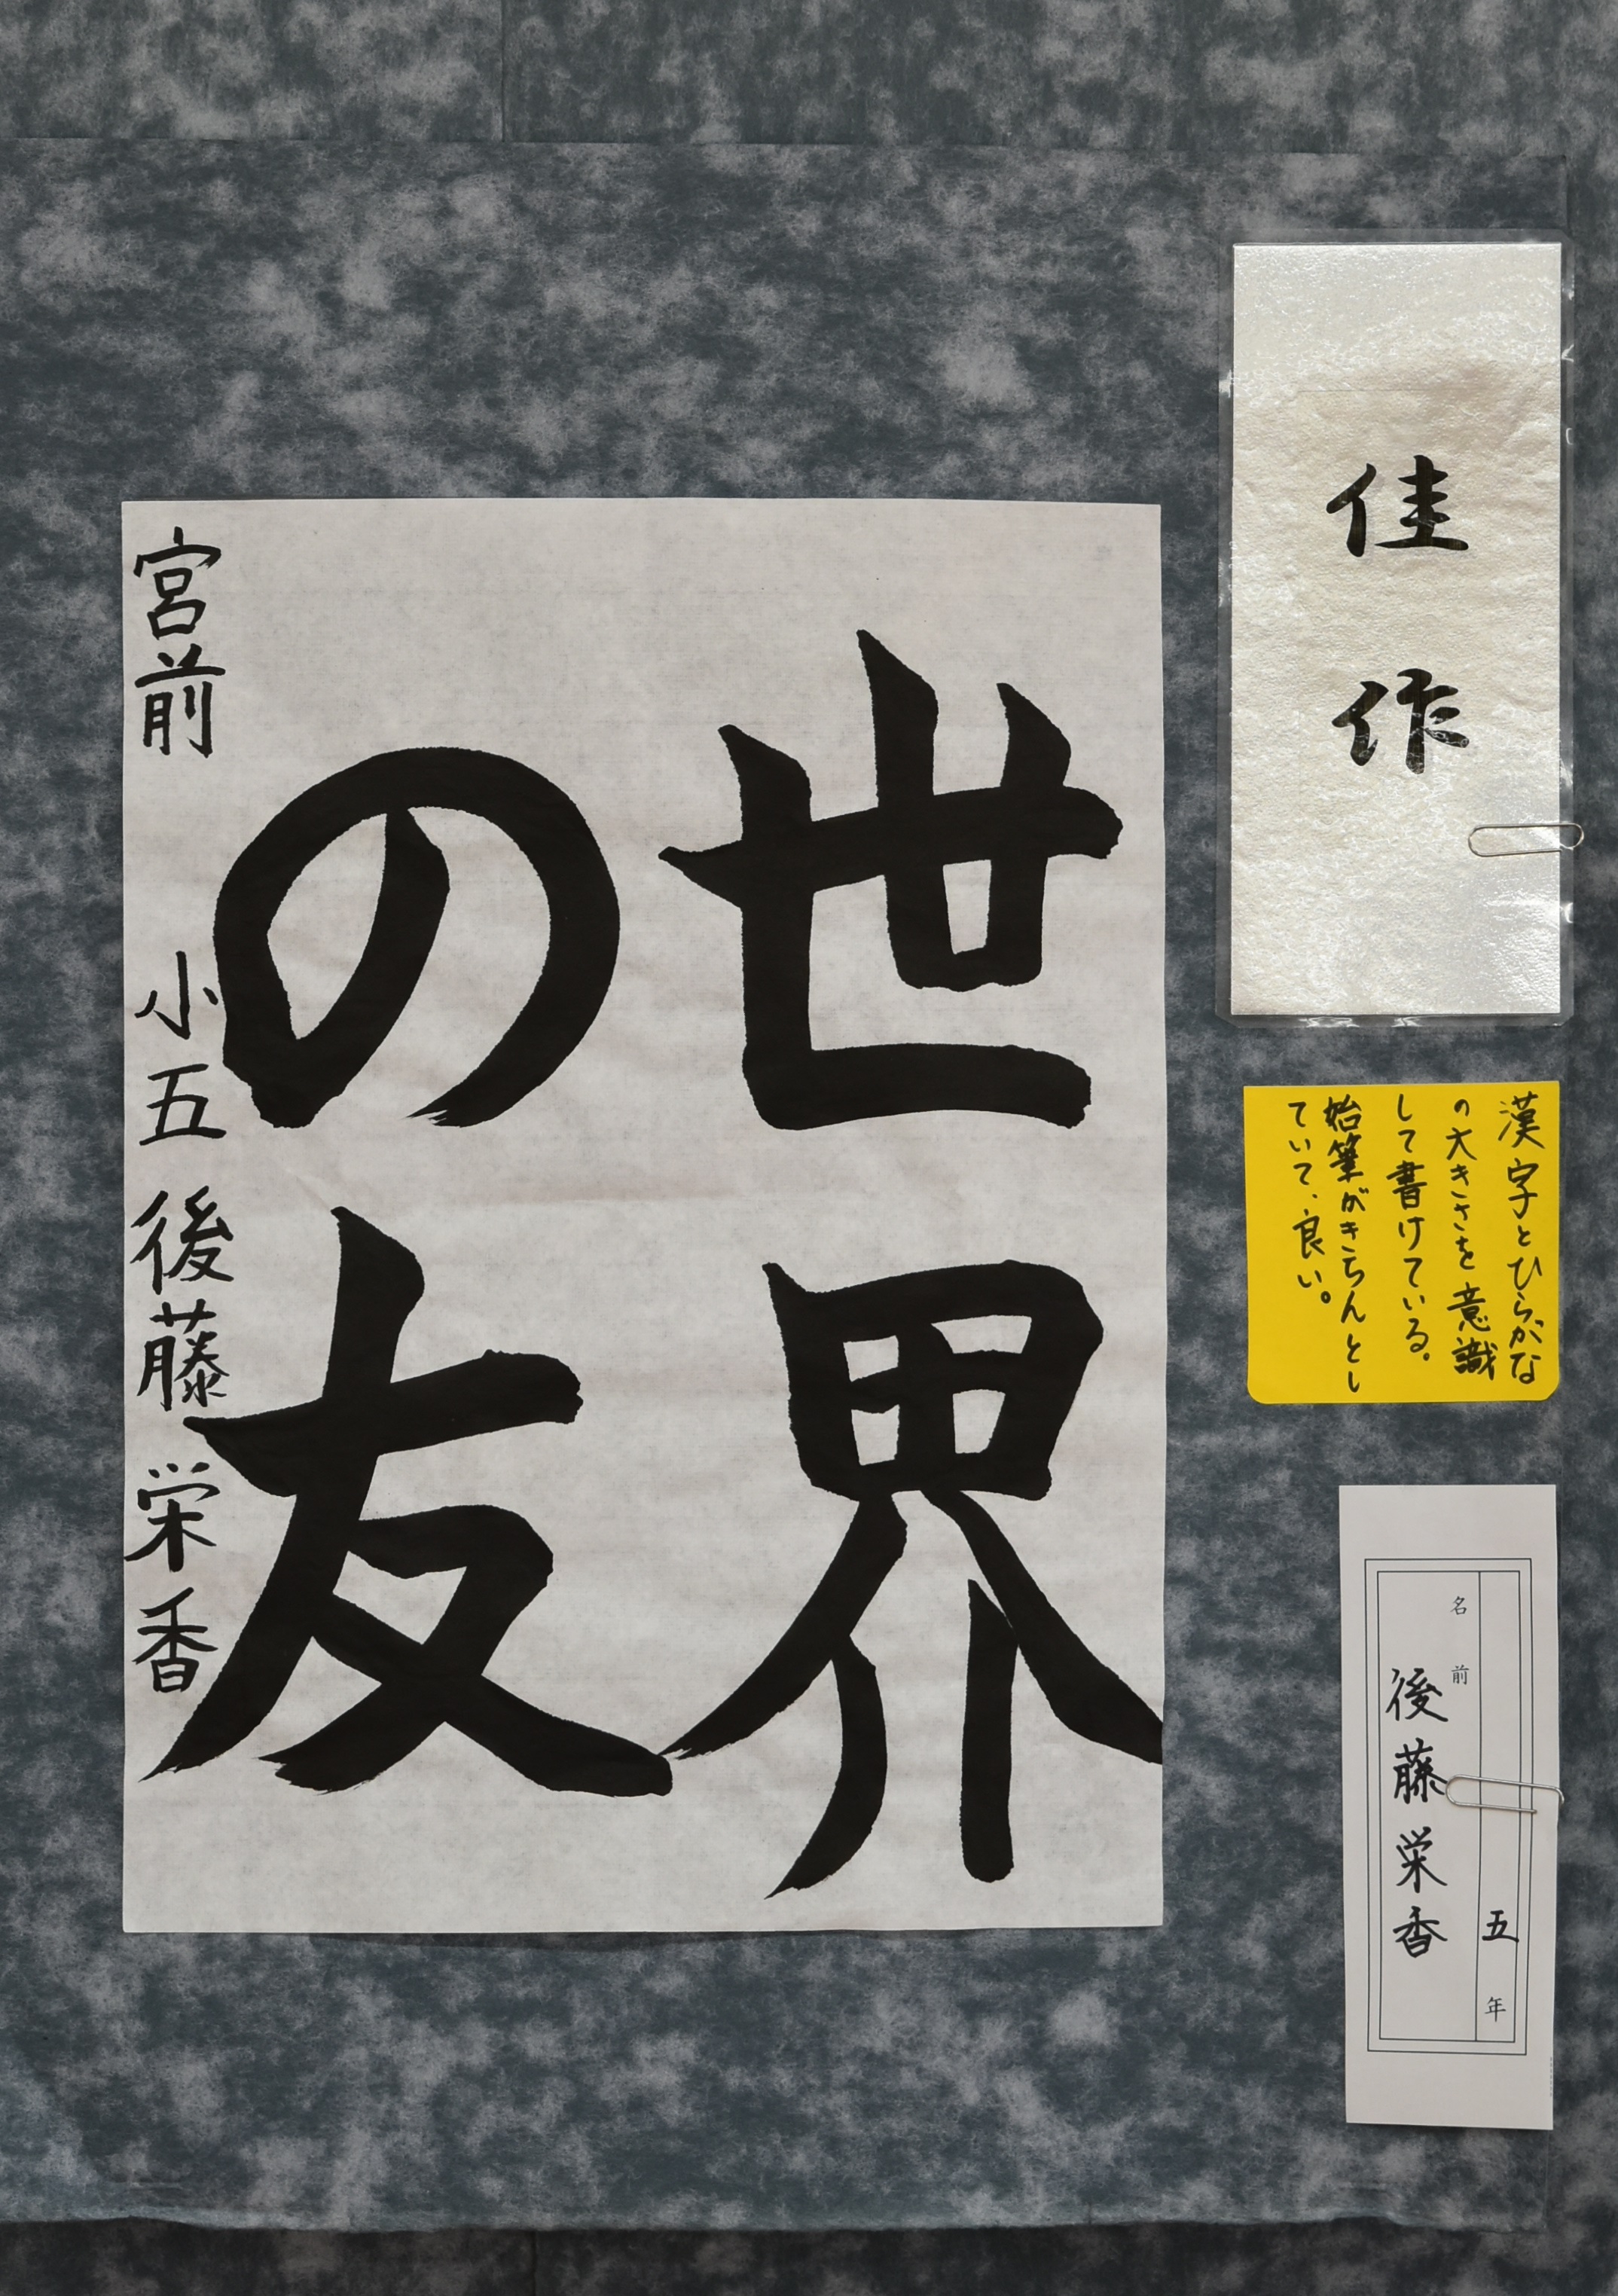 佳作
漢字とひらがな
の大きさを意識
して書けている。
始筆がきちんとし
ていて、良い。
五年
名前
後藤栄香
世界
の友
宮前 小五 後藤 栄香